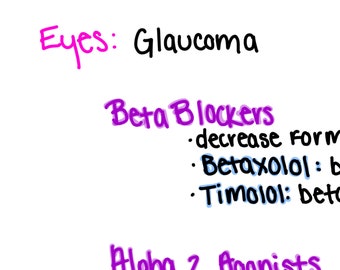 Eyes: Glaucoma
Beta Blockers
· decrease form
· Betaxolol: b
· Timolol: beta
Alpha 2 Agonists